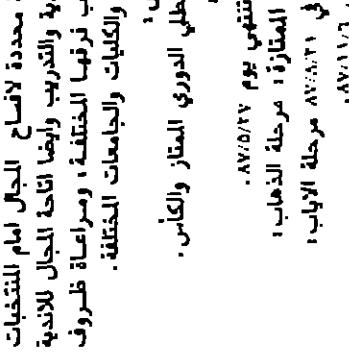 محددة لافساح المجال امام المنتخبات
ية والتدريب وايضا اتاحة المجال للاندية
ب فرقها المختلفة ، ومراعاة ظروف
والكليات والجامعات المختلفة .
طلي الدوري الممتاز والكأس .
تنتهي يوم ٨٧/٥/٢٧ .
الممتازة : مرحلة الذهاب :
في ٨٧/٨/٢١ مرحلة الاياب :
٨٧/١١/٦ .